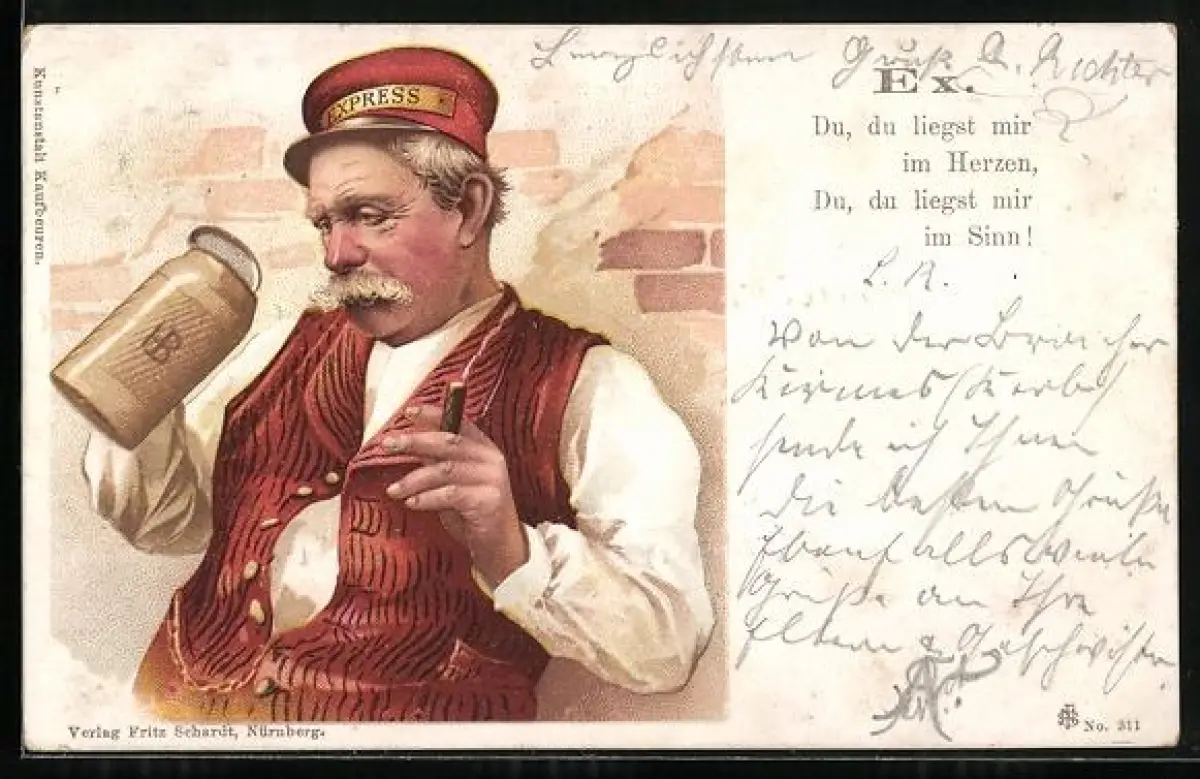 Kunstanstalt Kaufbeuren.
EXPRESS
HB
Herzlichsten Gruß A. Richter
Ex.
Du, du liegst mir
im Herzen,
Du, du liegst mir
im Sinn!
L. R.
Von der
Kirmes (Kerbe)
sende ich Ihnen
die besten Grüße
Ebenfalls viele
Grüße an Ihre
Eltern & Geschwister
Verlag Fritz Schardt, Nürnberg.
No. 311